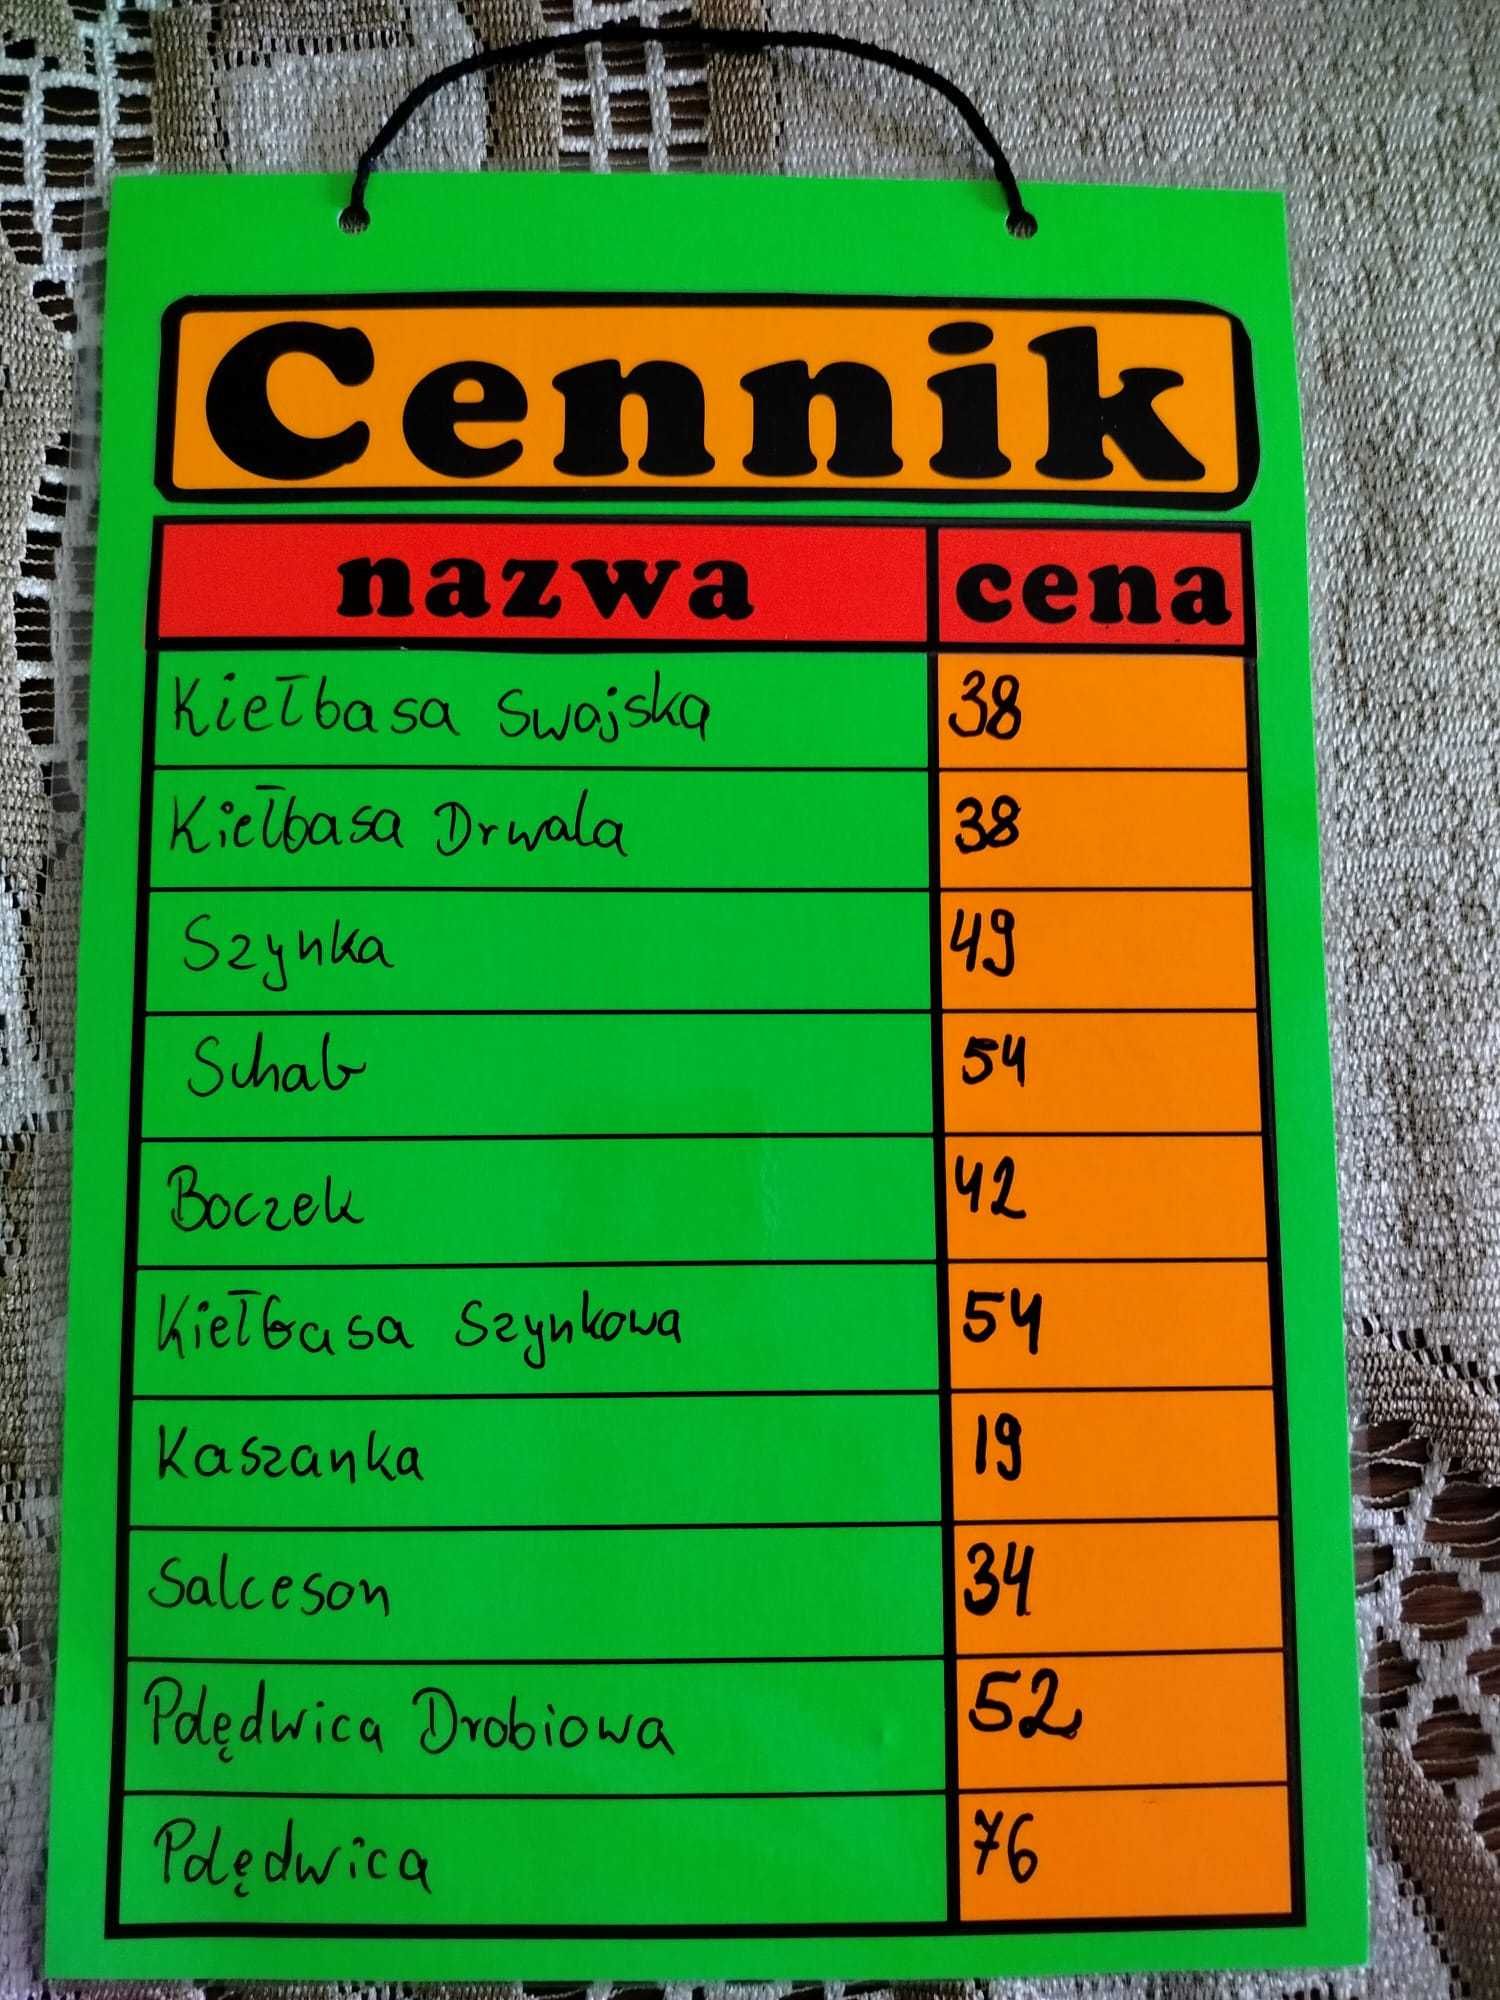 Cennik
nazwa cena
Kiełbasa Swojska 38
Kiełbasa Drwala 38
Szynka 49
Schab 54
Boczek 42
Kiełbasa Szynkowa 54
Kaszanka 19
Salceson 34
Polędwica Drobiowa 52
Polędwica 76